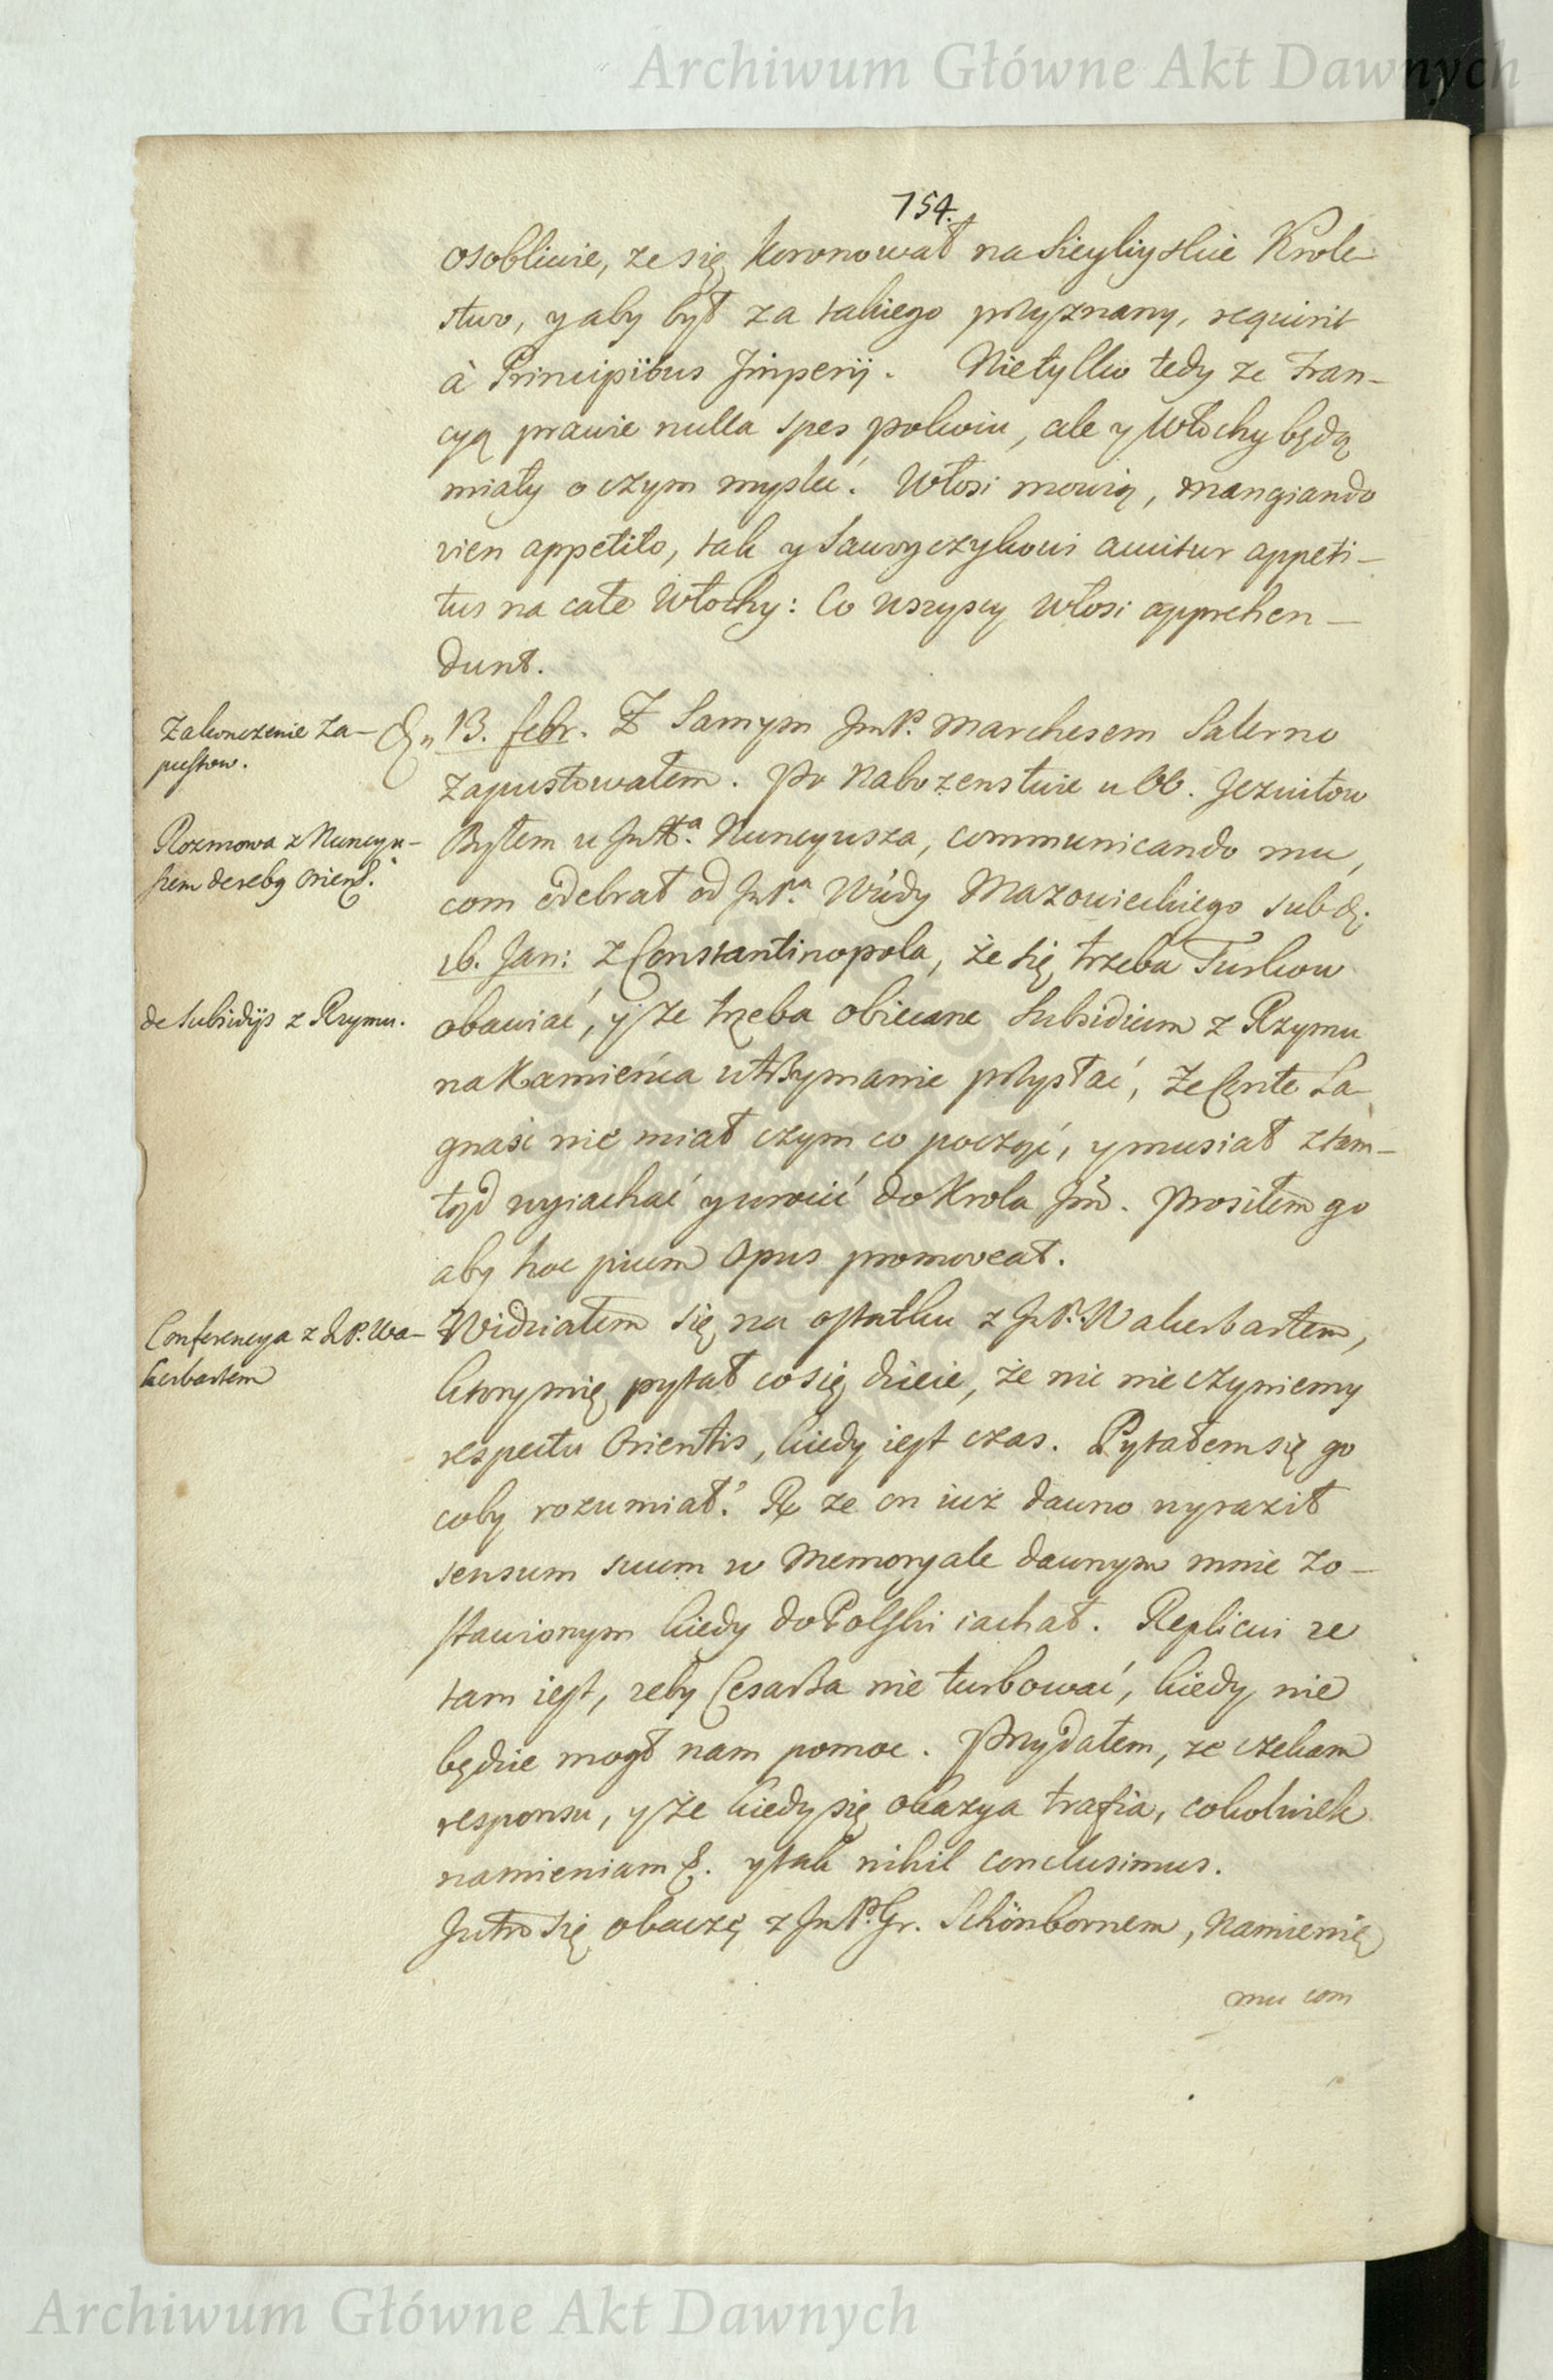 Archiwum Główne Akt Dawnych
154.
osobliwie, ze się koronował na Sicyliyskie Krole-
stwo, y aby był za takiego przyznany, requirit
à Principibus Imperij. Nietylko tedy ze Fran-
cyą prawie nulla spes pokoiu, ale y Włochy będą
miały o czym myslić. Włosi mowią, mangiando
vien appetito, tak y Sawoyczykowi acuitur appeti-
tus na całe Włochy: Co wszyscy Włosi apprehen-
dunt.
Zakonczenie Za-
pustow.
D„ 13. febr. Z Samym JmP. Marchesem Salerno
zapustowałem. Po Nabozenstwie u OO. Jezuitow
Rozmowa z Nuncyu-
szem de rebq Orient.
Byłem u Jmści Nuncyusza, communicando mu,
com odebrał od JmPa. Wdy Mazowieckiego sub d.
16. Jan: z Constantinopola, że się trzeba Turkow
de Subsidijs z Rzymu.
obawiać, y że trzeba obiecane Subsidium z Rzymu
na Kamieńca utrzymanie przysłać, że Conte La-
gnasi nie miał czym co począć, y musiał ztam-
tąd wyiachać y wrócić do Krola Jm. Prosiłem go
aby hoc pium Opus promoveat.
Conferencya z J.P. Wa-
kerbartem
Widziałem się na ostatku z JmP. Wakerbartem,
ktory mię pytał co się dzieie, że nic nie czyniemy
respectu Orientis, kiedy iest czas. Pytałem się go
coby rozumiał? Rx ze on iuż dawno wyraził
sensum suum w Memoryale dawnym mnie zo-
stawionym kiedy do Polski iachał. Replicui ze
tam iest, zeby Cesarza nie turbować, kiedy nie
będzie mogł nam pomoc. Przydałem, ze czekam
responsu, y że kiedy się okazya trafia, cokolwiek
namieniam &. y tak nihil conclusimus.
Jutro się obaczę z JmP. Gr. Schönbornem, Namienię
mu com
Archiwum Główne Akt Dawnych